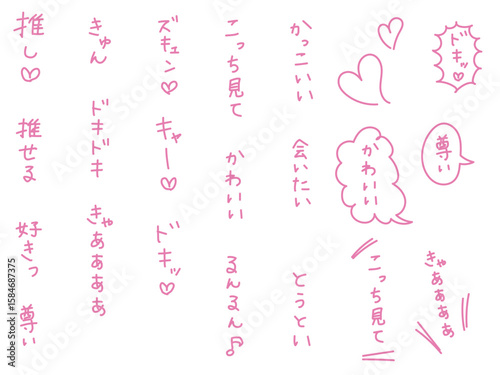 ドキッ♡
尊い
きゃぁぁぁぁ
かわいい
こっち見て
かっこいい
会いたい
とうとい
こっち見て
かわいい
るんるん♪
ズキュン♡
キャー♡
ドキッ♡
きゅん
ドキドキ
きゃぁぁぁぁ
推し♡
推せる
好きっ
尊い
Adobe Stock | #1584687375
Adobe Stock